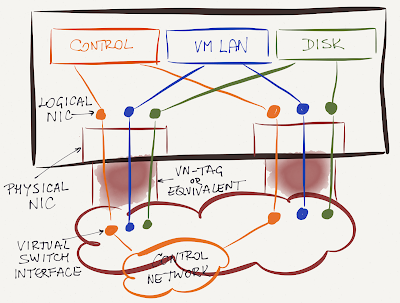 CONTROL
VM LAN
DISK
LOGICAL
NIC
PHYSICAL
NIC
VN-TAG
OR
EQUIVALENT
VIRTUAL
SWITCH
INTERFACE
CONTROL
NETWORK